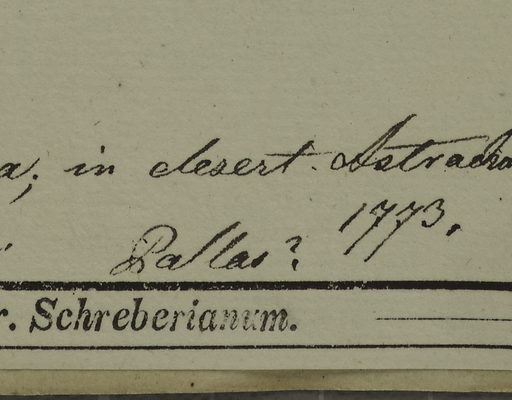 a; in desert. Astracha
1773.
Pallas?
r. Schreberianum.